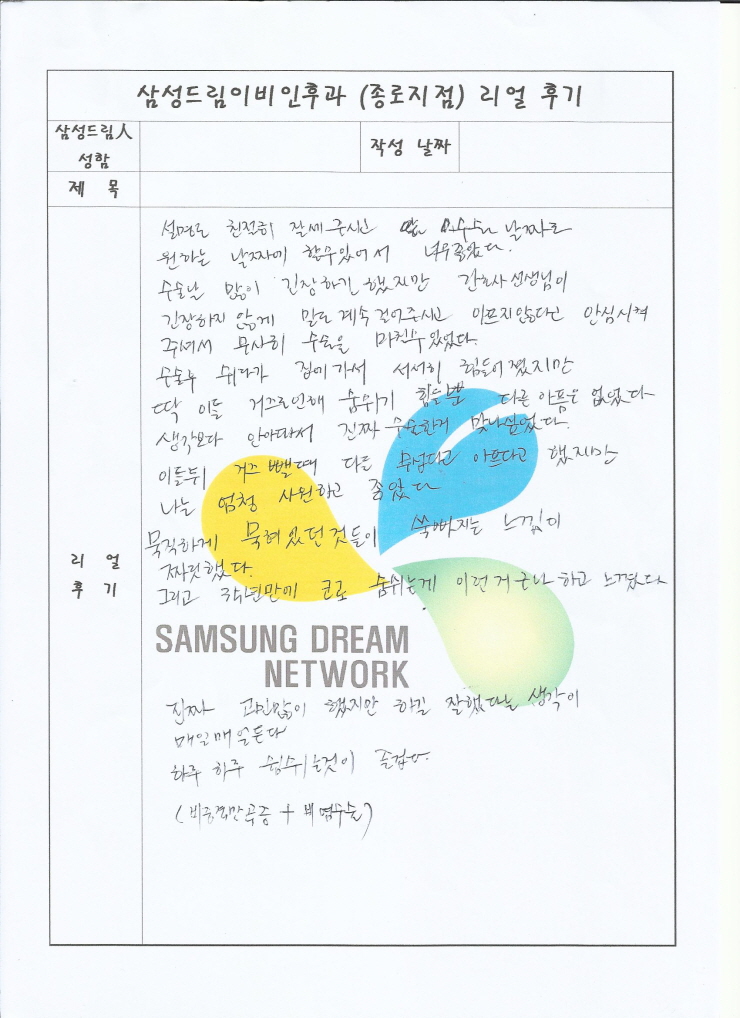 삼성드림이비인후과 (종로지점) 리얼 후기
삼성드림人
성함
작성 날짜
제 목
리 얼
후 기
설명도 친절히 잘해주시고 수술 날짜도
원하는 날짜에 할수있어서 너무좋았다.
수술날 많이 긴장하긴 했지만 간호사 선생님이
긴장하지 않게 말도 계속 걸어주시고 아프지않다고 안심시켜
주셔서 무사히 수술을 마칠수 있었다.
수술후 쉬다가 집에가서 서서히 힘들어졌지만
딱 이틀 거즈로인해 숨쉬기 힘들뿐 다른 아픔은 없었다
생각보다 안아파서 진짜 수술한게 맞나싶었다.
이틀뒤 거즈 뺄때 다들 무섭다고 아프다고 했지만
나는 엄청 시원하고 좋았다
묵직하게 묵혀있던것들이 쑥빠지는 느낌이
짜릿했다.
그리고 코로 숨쉬는게 이런거구나 하고 느꼈다
SAMSUNG DREAM
NETWORK
진짜 고민많이 했지만 하길 잘했다는 생각이
매일매일든다
하루 하루 숨쉬는것이 즐겁다.
(비중격만곡증 + 비염수술)